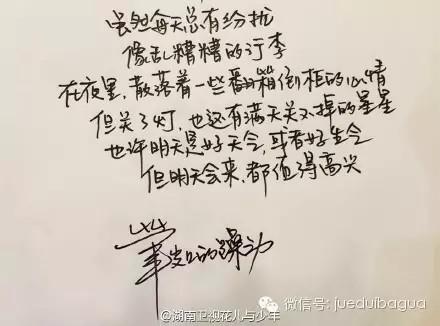 虽然每天总有纷扰
像乱糟糟的行李
在夜里,散落着一些翻箱倒柜的心情
但关了灯,也还有满天关不掉的星星
也许明天是好天气,或者好生气
但明天会来,都值得高兴
的躁动
@湖南卫视花儿与少年
微信号: jueduibagua